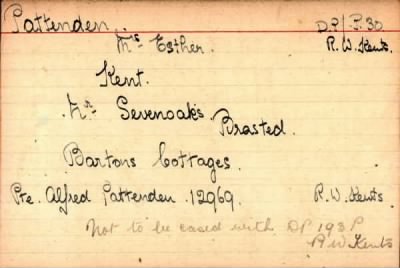 Pattenden. D.P/P.30
Mrs Esther. R.W.Kents.
Kent.
Nr Sevenoaks.
Brasted.
Bartons Cottages.
Pte. Alfred Pattenden. 12969. R.W.Kents
Not to be cased with DP 193 P
R W Kents